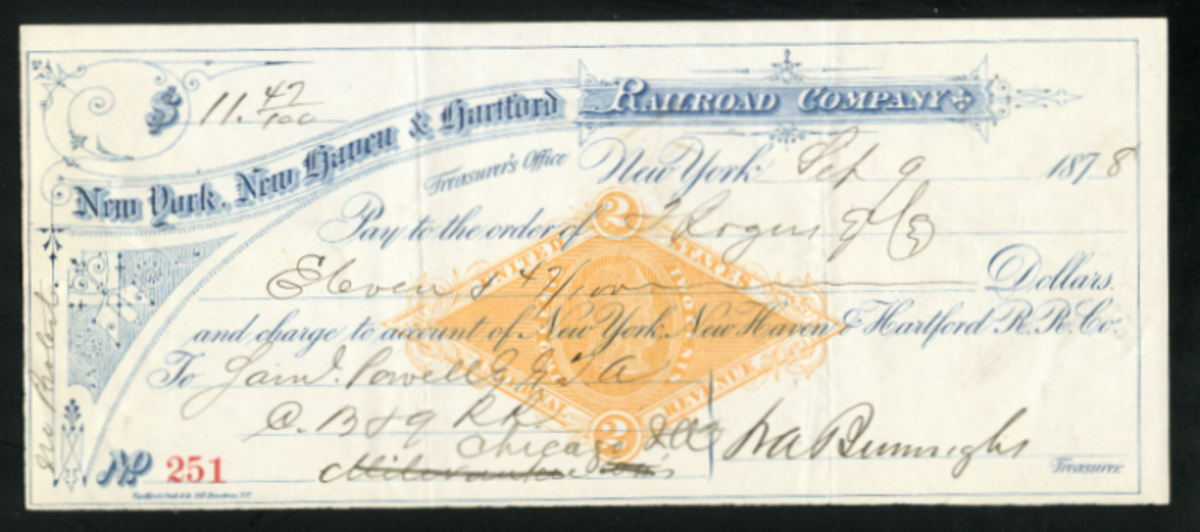 $ 11. 47/100
New York, New Haven & Hartford RAILROAD COMPANY
Treasurer's Office New York Sep 9 1878
Pay to the order of J Rogers & Co
Eleven & 47/100 Dollars
and charge to account of New York, New Haven & Hartford R.R. Co.
To Saml. Powell G.T.A
C. B & Q R.R.
Chicago Ills
Milwaukee Wis
W A Burroughs
Treasurer
No 251
2 UNITED STATES
INTERNAL REVENUE 2